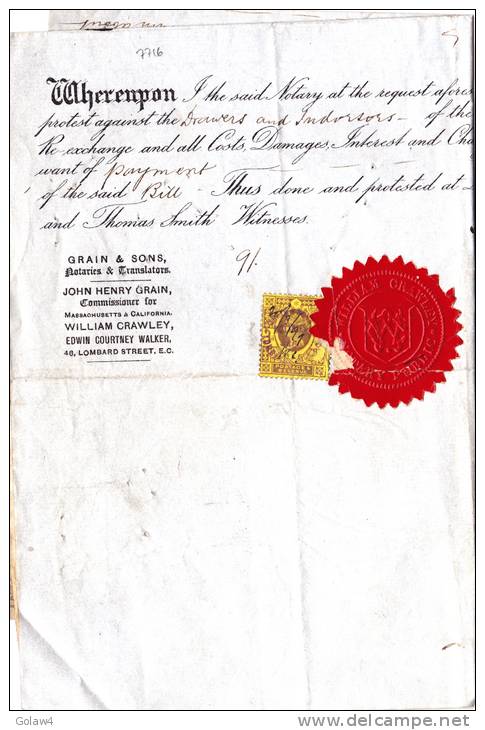 7716
Whereupon I the said Notary at the request afores
protest against the Drawers and Indorsors – of the
Re-exchange and all Costs, Damages, Interest and Cha
want of payment
of the said Bill – Thus done and protested at
and Thomas Smith Witnesses.
GRAIN & SONS,
Notaries & Translators.
JOHN HENRY GRAIN,
Commissioner for
MASSACHUSETTS & CALIFORNIA.
WILLIAM CRAWLEY,
EDWIN COURTNEY WALKER,
46, LOMBARD STREET, E.C.
9/.
POSTAGE &
REVENUE
WILLIAM CRAWLEY
NOTARY PUBLIC
Golaw4
delcampe.net